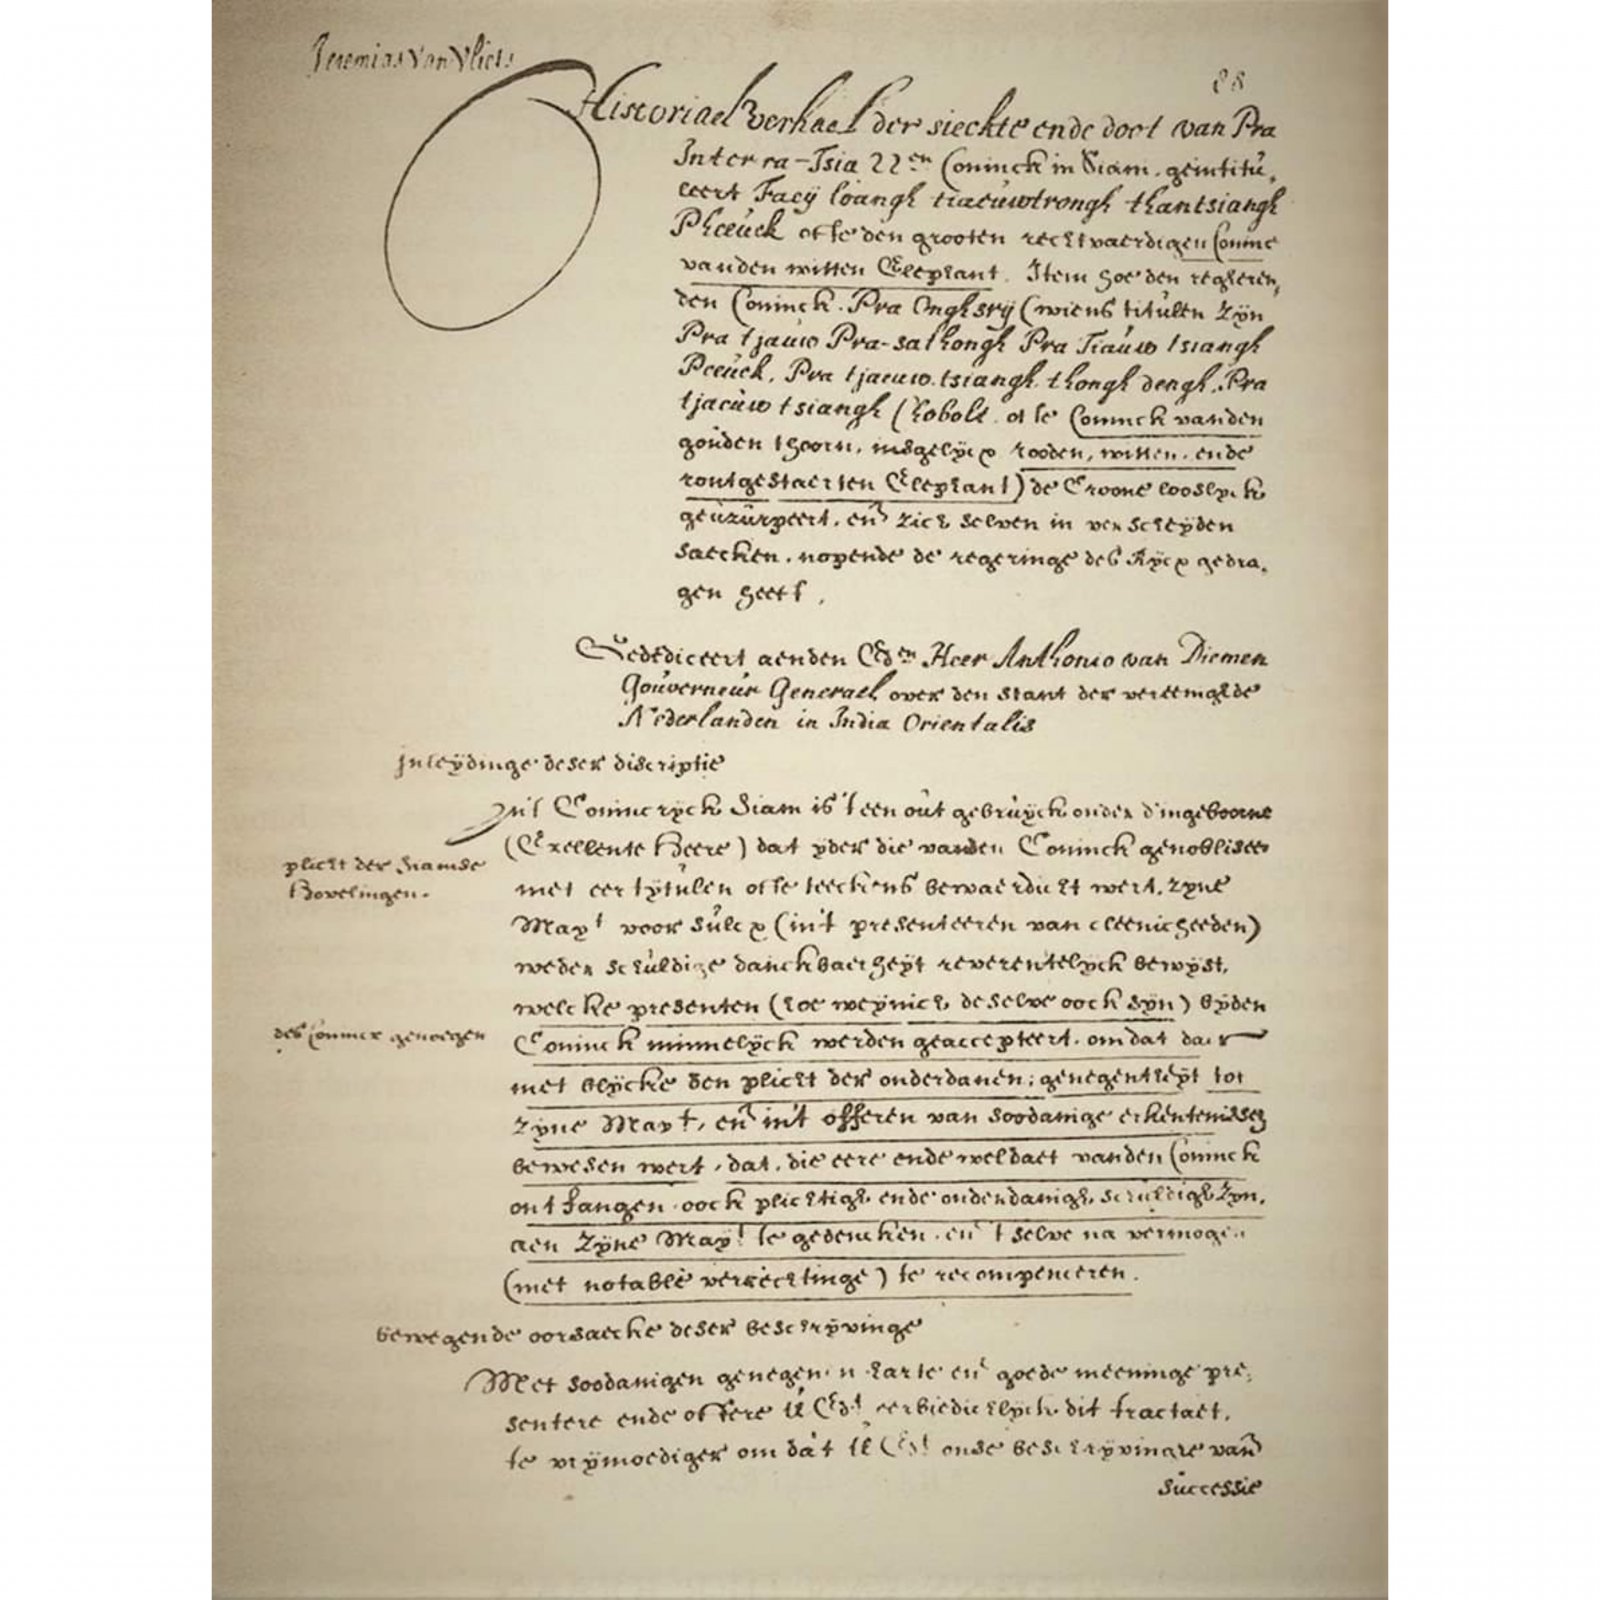 Jeremias van Vliets
88
Historiael verhael der sieckte ende doot van Pra
Interra-Tsia 22en Coninck in Siam. geintitu,
leert Faeÿ loangh tiaeuwtrongh thantsiangh
Pheeuck ofte den grooten rechtvaerdigen Coninc
vanden witten Elephant. Item hoe den regieren,
den Coninck. Pra Onghsrij (wiens titulen zÿn
Pra tjauw Pra-sathongh Pra Tiauw tsiangh
Peeuck, Pra tjaeuw. tsiangh. thongh dengh. Pra
tjaeuw tsiangh Chobolt. ofte Coninck vanden
gouden thoorn, insgelÿcx rooden, witten. ende
rontgestaerten Elephant) de Croone looslyck
geuzurpeert. en zich selven in verscheÿden
saecken. nopende de regeringe des Rÿcx gedra,
gen heeft,
Gedediceert aenden Eden Heer Anthonio van Diemen
Gouverneur Generael over den stant der vereenichde
Nederlanden in India Orientalis
Inleÿdinge deser discriptie
In't Conincrÿck Siam is 't een out gebruÿck onder d'ingeboorne
(Exellente Heere) dat ÿder die vanden Coninck genobliseer
plicht der Siamse
met eertÿtulen ofte teeckens bewaerdicht wert. zyne
Hovelingen.
Mayt voor sulcx (in't presenteeren van cleenicheeden)
weder schuldige danckbaerheÿt reverentelyck bewÿst,
welcke presenten (hoe weÿnich deselve oock sÿn) bÿden
des Conincx genoegen
Coninck minnelÿck werden geaccepteert. omdat daer
met blÿcke den plicht der onderdanen; genegentheÿt tot
zyne Mayt, en in't offeren van soodanige erkentenissen
bewesen wert, dat, die eere ende weldaet vanden Coninck
ontfangen. oock plichtigh ende onderdanigh schuldigh zyn.
aen zÿne Maÿt te gedencken. en 't selve na vermoge..
(met notable verrechtinge) te recompenceren.
bewegende oorsaecke deser beschryvinge
Met soodanigen genegen harte en goede meeninge pre,
sentere ende offere U Edt eerbiedichlyck dit tractaet,
te vrÿmoediger om dat U Edt onse beschryvinge van
successie